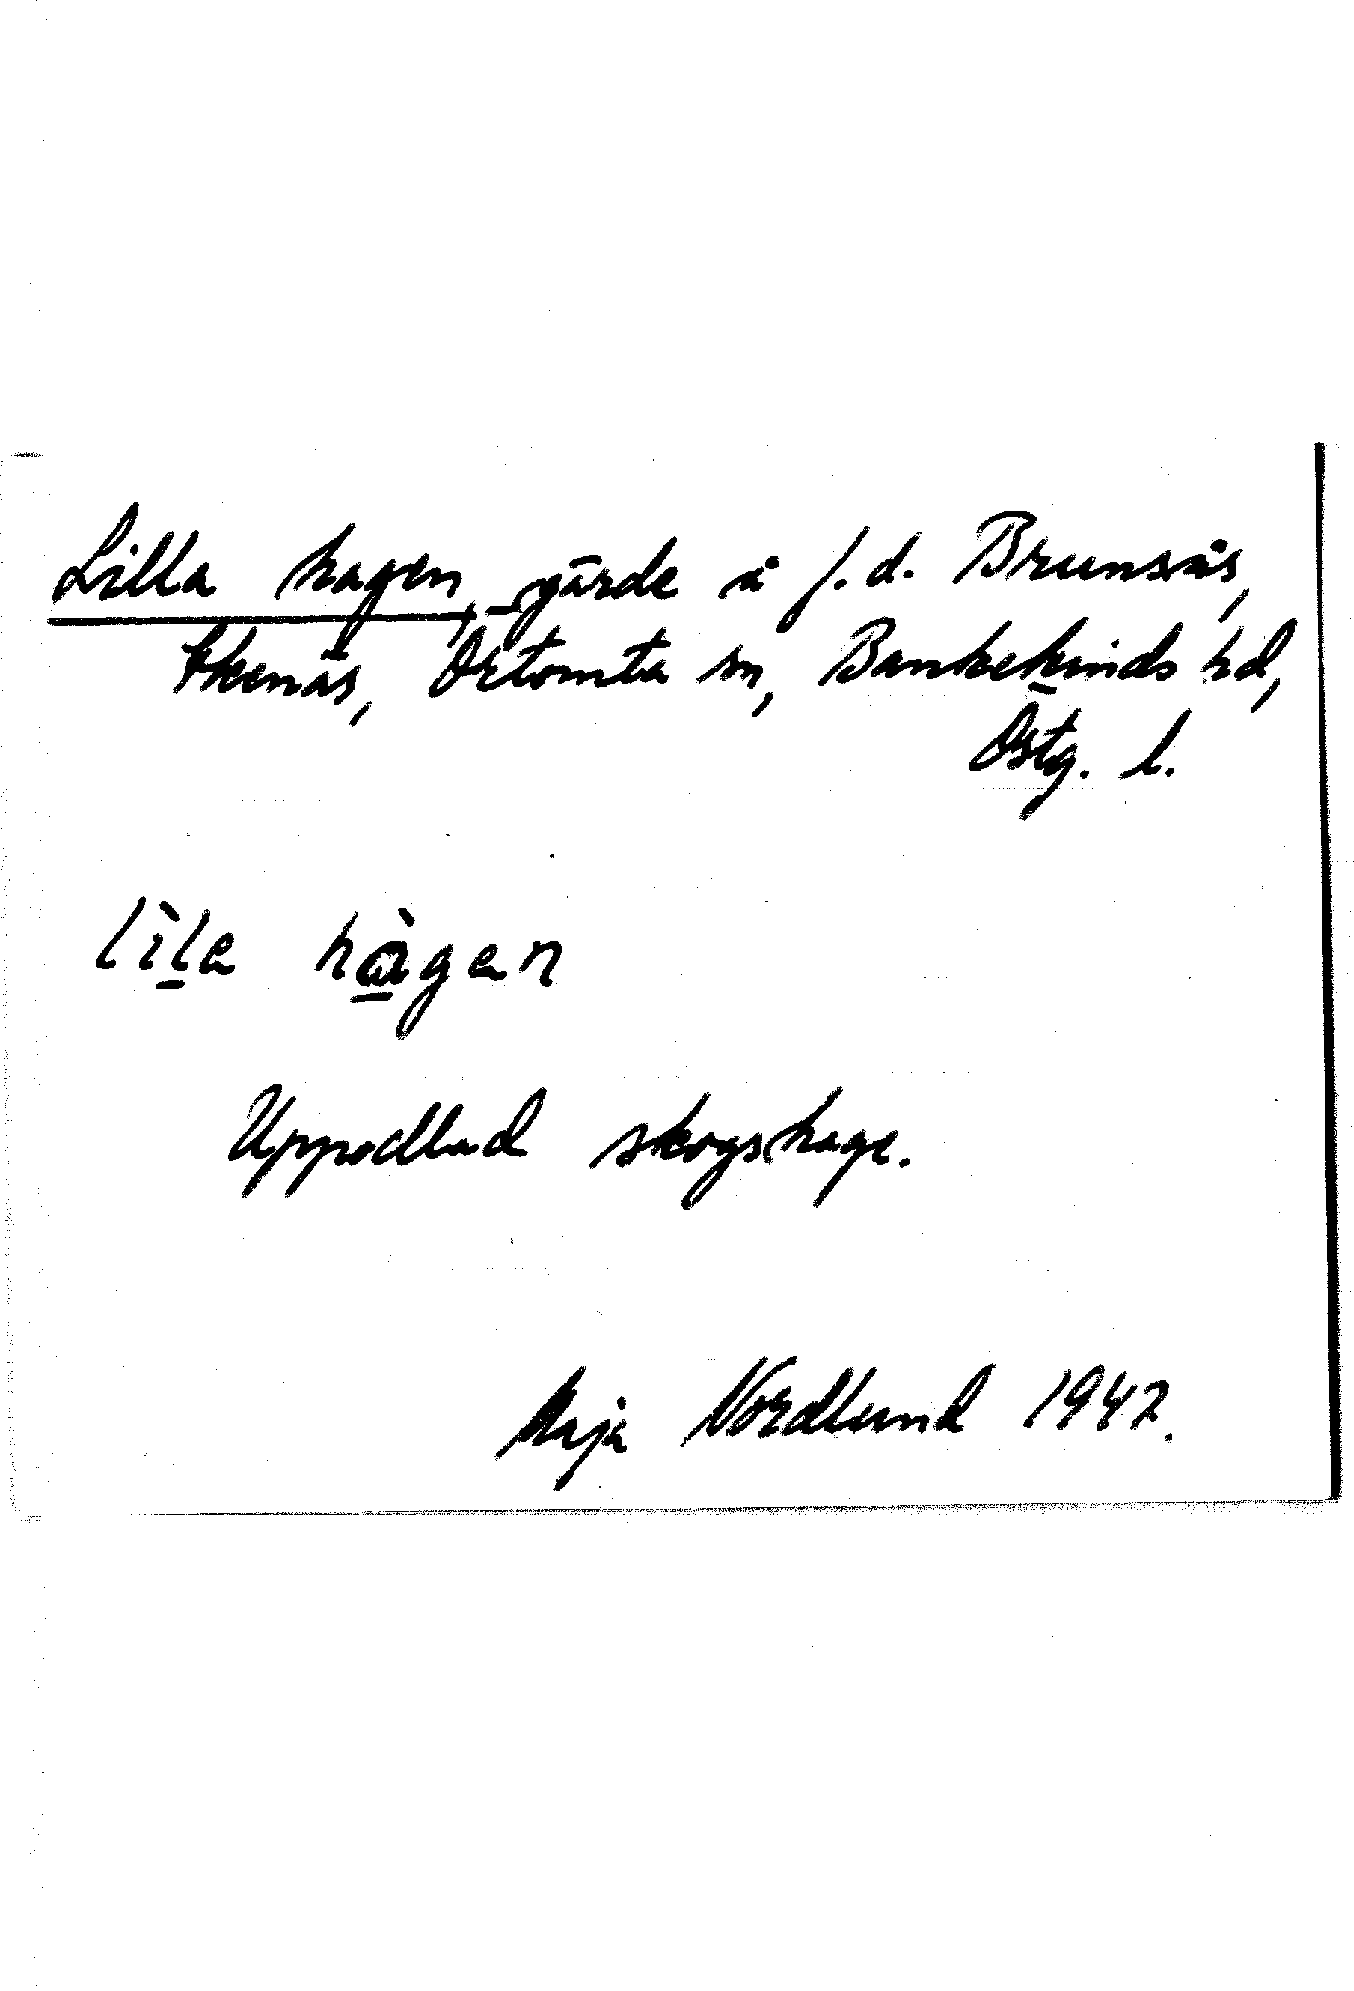 Lilla hagen, gärde å f.d. Brunsås,
Skenäs, Örtomta sn, Bankekinds hd,
Östg. l.
lìla hàgen
Uppodlad skogshage.
Maja Nordlund 1942.